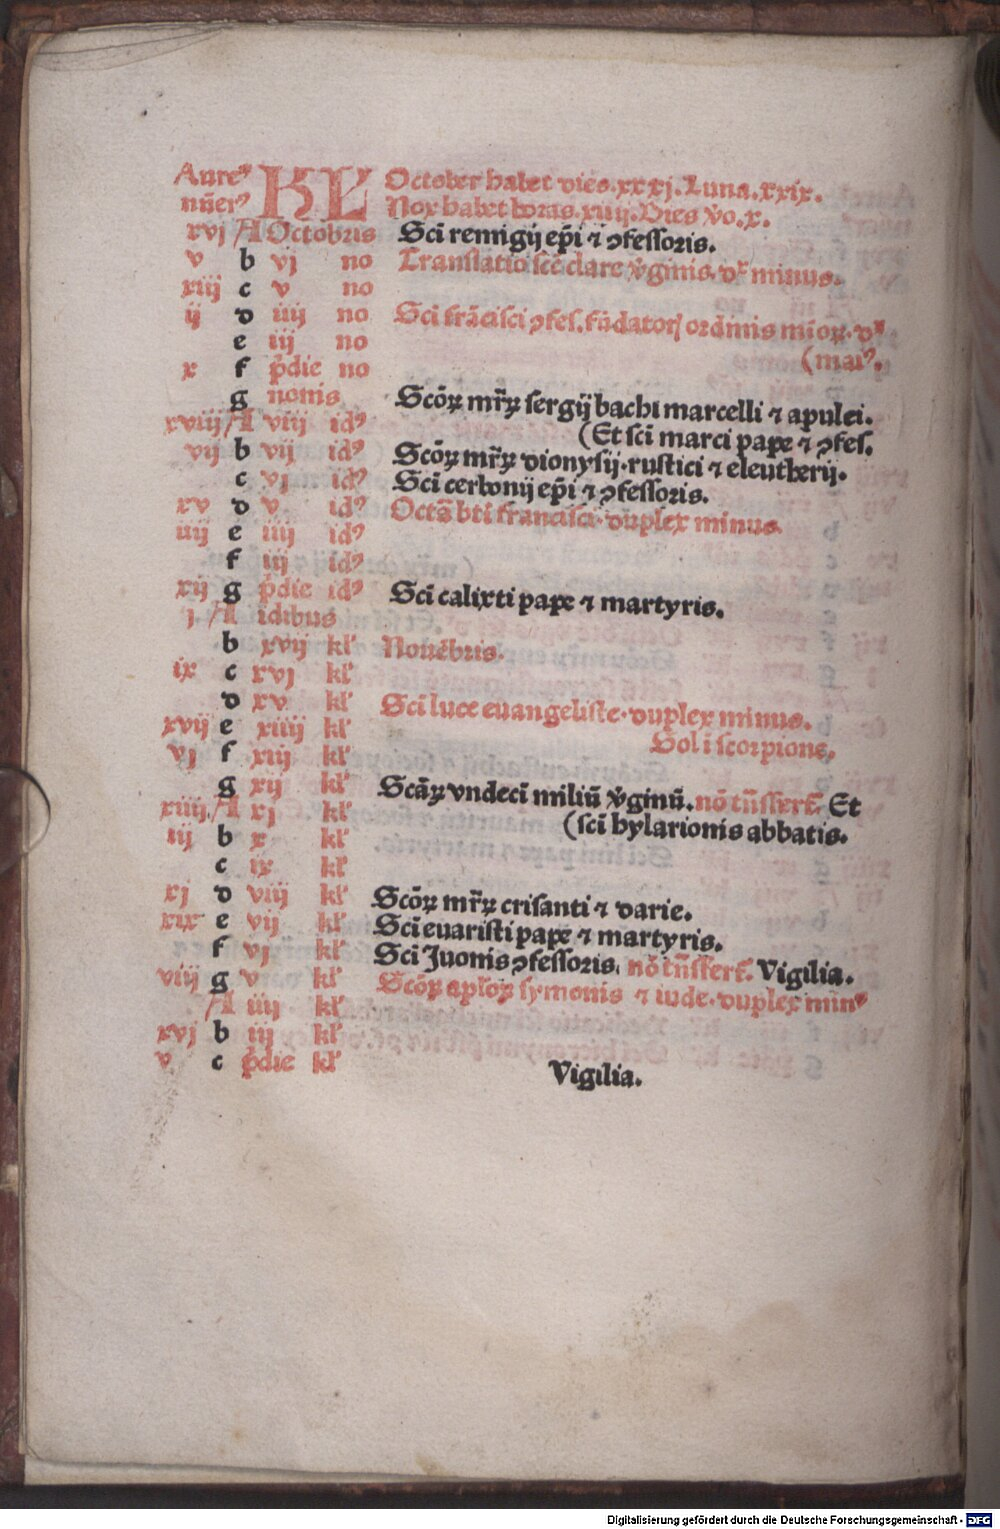 Aureꝰ KL' October habet dies.xxxj.Luna.xxix.
nūerꝰ Nox habet horas.xiiij.Dies v̄o.x.
xvj A Octobris Sci remigij ep̄i ⁊ ꝯfessoris.
v b vj no Translatio scē clare v̄ginis.dꝰ minus.
xiij c v no
ij d iiij no Sci frācisci ꝯfes.fūdatorꝭ ordinis minoꝝ.dꝰ
e iij no (maiꝰ.
x f p̄die no
g nonis Scōꝝ mr̄ꝝ sergij bachi marcelli ⁊ apulei.
xviij A viij idꝰ (Et sci marci pape ⁊ ꝯfes.
vij b vij idꝰ Scōꝝ mr̄ꝝ dionysij.rustici ⁊ eleutherij.
c vj idꝰ Sci cerbonij ep̄i ⁊ ꝯfessoris.
xv d v idꝰ Octā bti francisci.duplex minus.
iiij e iiij idꝰ
f iij idꝰ
xij g p̄die idꝰ Sci calixti pape ⁊ martyris.
j A idibus
b xvij kl' Nouēbris.
ix c xvj kl'
d xv kl' Sci luce euangeliste.duplex minus.
xvij e xiiij kl' Sol i scorpione.
vj f xiij kl'
g xij kl' Scāꝝ vndeci miliū v̄ginū.nō trāsfert̄. Et
xiiij A xj kl' (sci hylarionis abbatis.
iij b x kl'
c ix kl'
xj d viij kl' Scōꝝ mr̄ꝝ crisanti ⁊ darie.
xix e vij kl' Sci euaristi pape ⁊ martyris.
f vj kl' Sci Juonis ꝯfessoris. nō trāsfert̄. Vigilia.
viij g v kl' Scōꝝ apl'oꝝ symonis ⁊ iude.duplex minꝰ
A iiij kl'
xvj b iij kl'
v c p̄die kl' Vigilia.
Digitalisierung gefördert durch die Deutsche Forschungsgemeinschaft - DFG